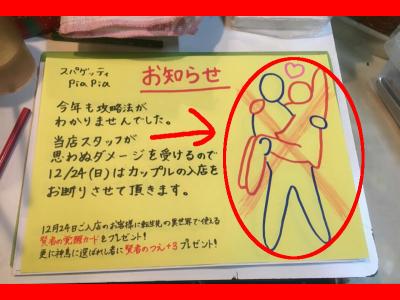 スパゲッティ
Pia Pia
お知らせ
今年も攻略法が
わかりませんでした。
当店スタッフが
思わぬダメージを受けるので
12/24(日)はカップルの入店を
お断りさせて頂きます。
12月24日ご入店のお客様に転生先の異世界で使える
賢者の覚醒カードをプレゼント!
更に神馬に選ばれし者に賢者のつえ+3プレゼント!